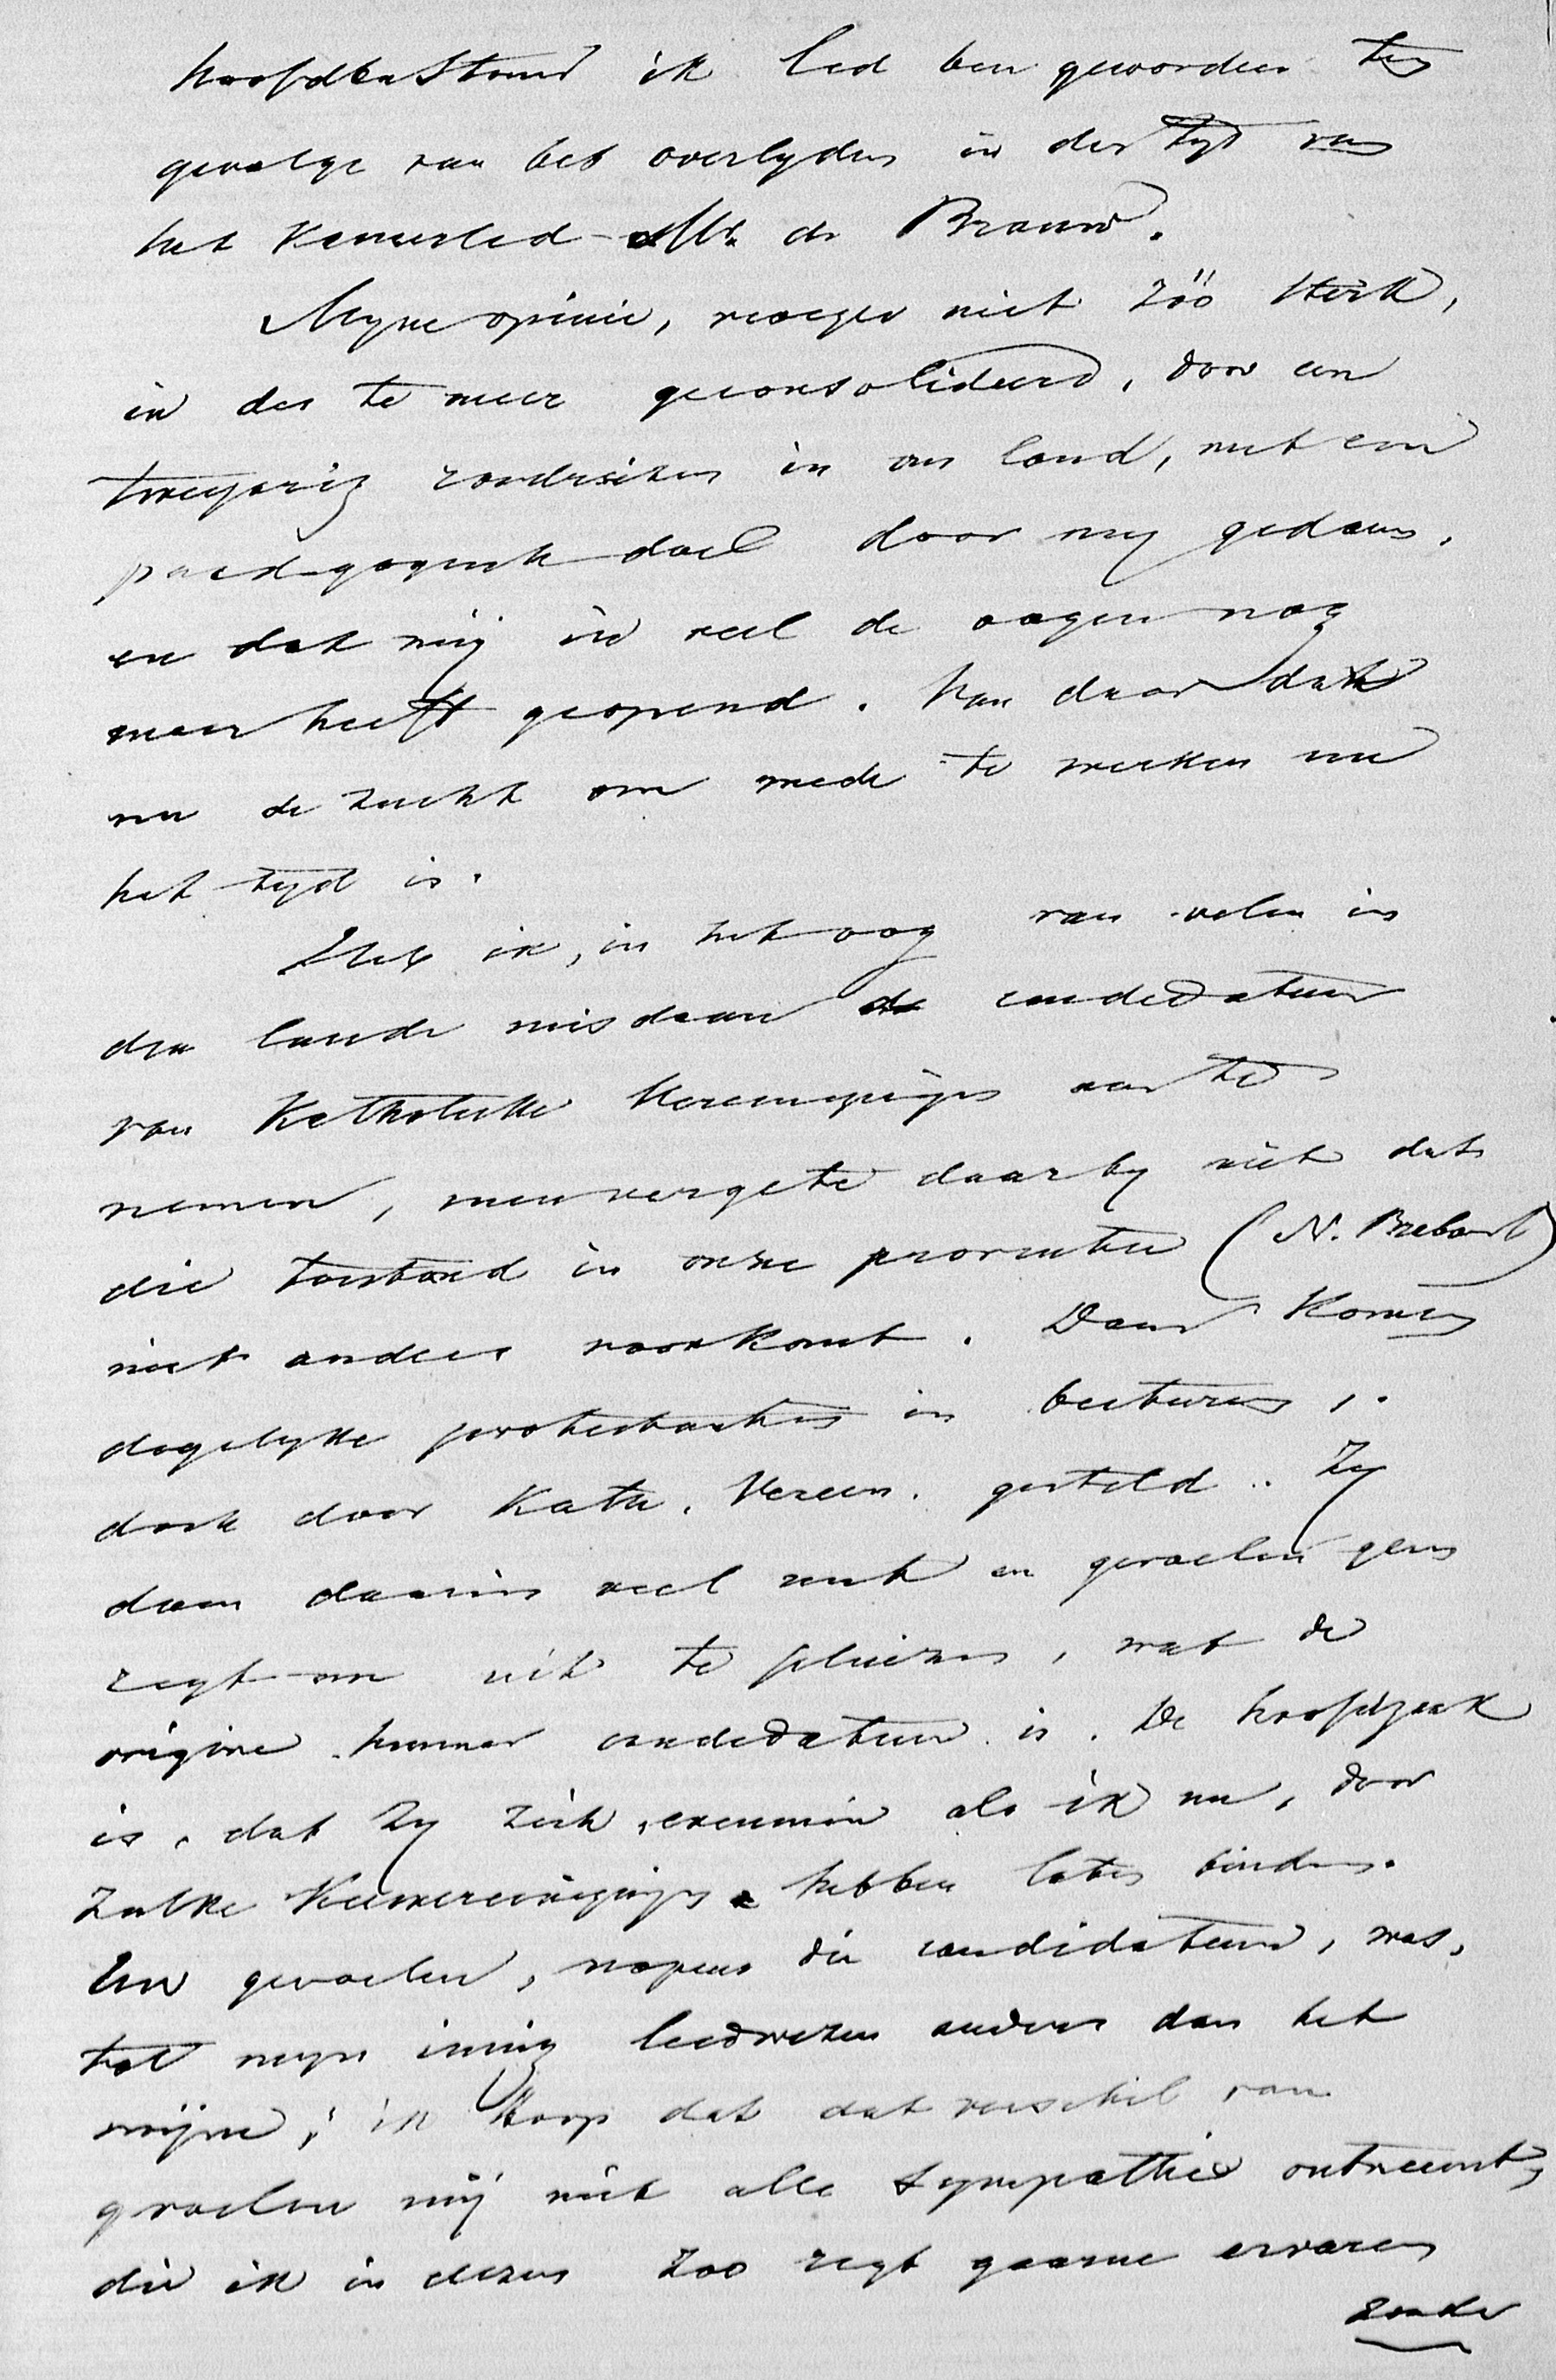 hoofdbestuur ik lid ben geworden ten
gevolge van het overlyden in der tyd van
het Kamerlid Mr. de Brauw.
Myne opinie, vroeger niet zóó sterk,
is des te meer geconsolideerd, door een
tweejarig rondreizen in ons land, met een
paedagogisch doel door my gedaan,
en dat mij in veel de oogen nog
meer heeft geopend. Van daar dat
nu de zucht om mede te werken nu
het tyd is.
Heb ik, in het oog van velen in
den lande misdaan de candidatuur
van Katholieke Vereenigingen aan te
nemen, men vergete daarby niet dat
die toestand in onze provincie (N. Brabant)
niet anders voorkomt. Daar komen
dagelykse protestanten in besturen,
doch door Kath. Vereen. gesteld. Zy
doen daarin veel nut en gevoelen geen
regt om uit te pluizen, wat de
origine hunner candidatuur is. De hoofdzaak
is, dat zy zich, evenmin als ik nu, door
zulke Kiesvereenigingen hebben laten binden.
Uw gevoelen, nopens die candidatuur, was,
tot myn innig leedwezen anders dan het
mijne; ik hoop dat dat verschil van
gevoelen mij niet alle sympathie ontneemt,
die ik in dezen zoo regt gaarne ervaren
zoude